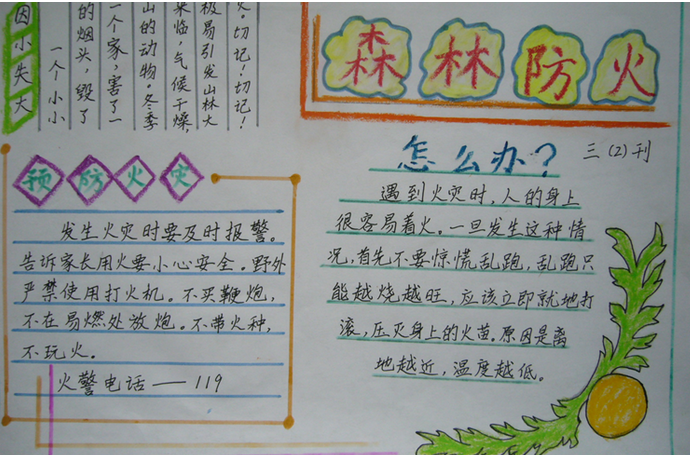 森林防火
因小失大
一个小小
的烟头，毁了
一个家，害了一
山的动物。冬季
来临，气候干燥，
极易引发山林大
火。切记！切记！
预防火灾
发生火灾时要及时报警。
告诉家长用火要小心安全。野外
严禁使用打火机。不买鞭炮，
不在易燃处放炮。不带火种，
不玩火。
火警电话——119
怎么办？
三（2）刊
遇到火灾时，人的身上
很容易着火。一旦发生这种情
况，首先不要惊慌乱跑，乱跑只
能越烧越旺，应该立即就地打
滚，压灭身上的火苗。原因是离
地越近，温度越低。